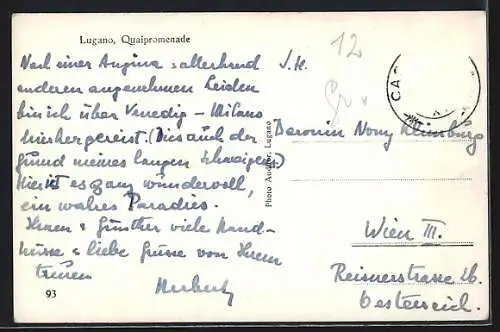 Lugano, Quaipromenade
Nach einer Angina & allerhand
anderen angenehmen Leiden
bin ich über Venedig - Milano
hierher gereist. (Dies auch der
Grund meines langen Schweigens)
Hier ist es ganz wundervoll,
ein wahres Paradies.
Ihnen & Günther viele Hand-
küsse & liebe Grüsse von Ihrem
treuen
Herbert
93
Photo Auditor, Lugano
12
CA
I. H.
Baronin Nony Klinburg
Wien III.
Reisnerstrasse 26
Oesterreich.